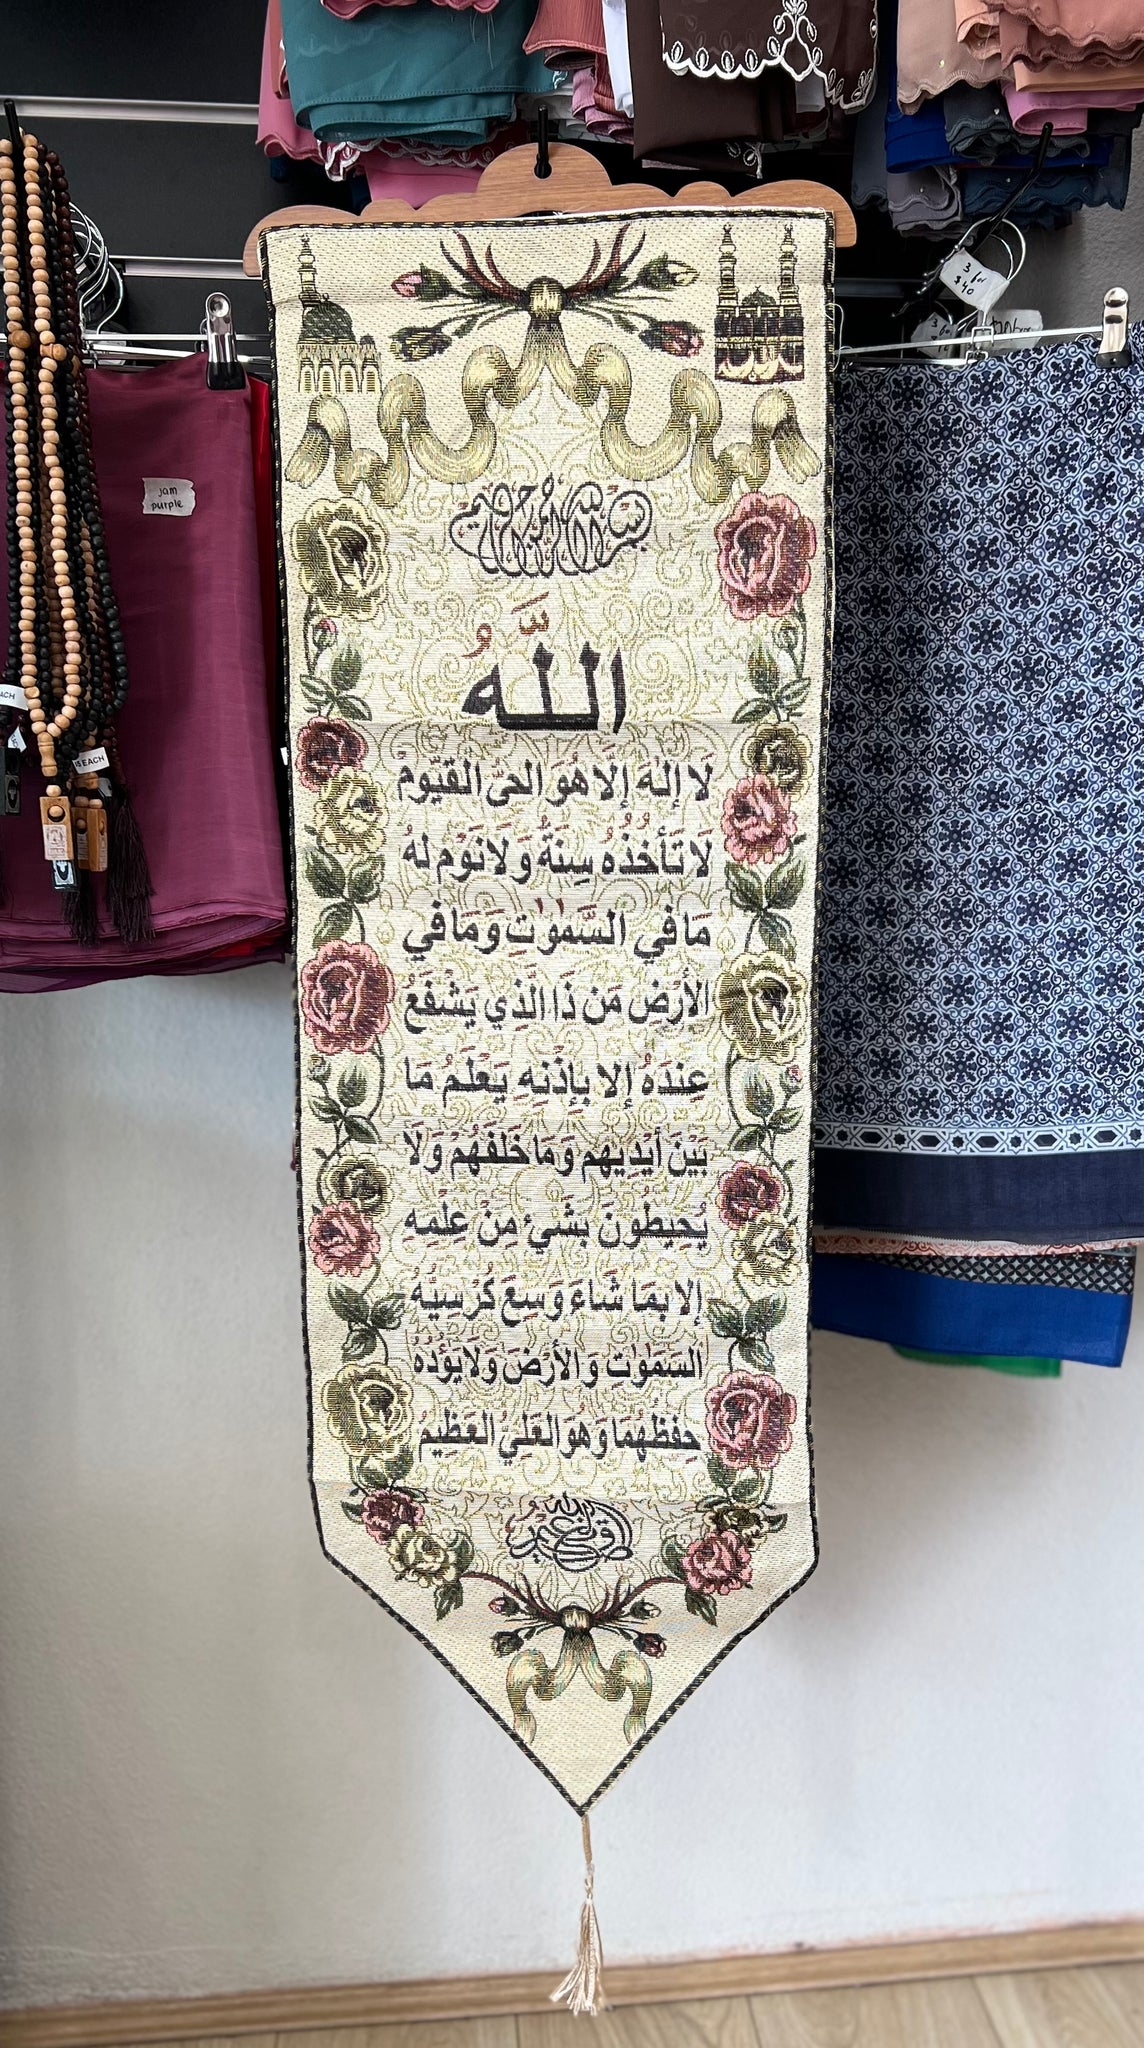 بسم الله الرحمن الرحيم
اللَّهُ
لَا إِلٰهَ إِلَّا هُوَ الْحَيُّ الْقَيُّومُ
لَا تَأْخُذُهُ سِنَةٌ وَلَا نَوْمٌ لَهُ
مَا فِي السَّمٰوٰتِ وَمَا فِي
الْأَرْضِ مَن ذَا الَّذِي يَشْفَعُ
عِندَهُ إِلا بِإِذْنِهِ يَعْلَمُ مَا
بَيْنَ أَيْدِيهِمْ وَمَا خَلْفَهُمْ وَلَا
يُحِيطُونَ بِشَيْءٍ مِنْ عِلْمِهِ
إِلا بِمَا شَاءَ وَسِعَ كُرْسِيُّهُ
السَّمٰوٰتِ وَالْأَرْضَ وَلَا يَؤُدُهُ
حِفْظُهُمَا وَهُوَ الْعَلِيُّ الْعَظِيمُ
صدق الله العظيم
jam
purple
3 for
$40
ACH
$5 EACH